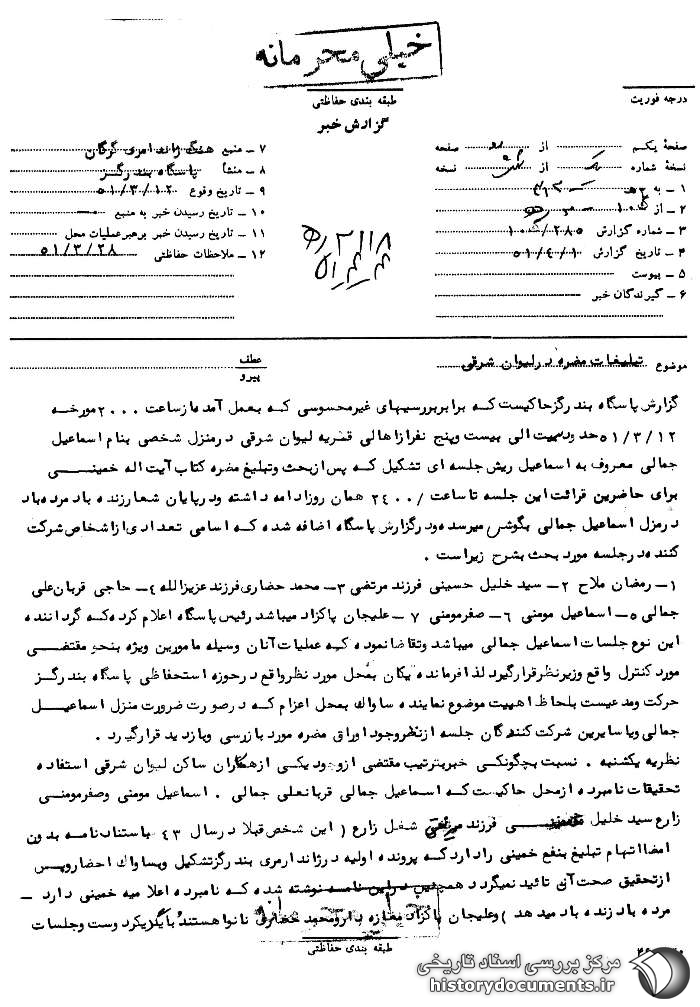 خیلی محرمانه
طبقه بندی حفاظتی
درجه فوریت
گزارش خبر
صفحهٔ یکم از دو صفحه
نسخهٔ شماره یک از شش نسخه
۱ - به ۳۱۲
۲ - از
۳ - شماره گزارش
۴ - تاریخ گزارش ۵۱/۴/۱
۵ - پیوست
۶ - گیرندگان خبر
۷ - منبع هنگ ژاندارمری گرگان
۸ - منشأ پاسگاه بندرگز
۹ - تاریخ وقوع ۵۱/۳/۱۲
۱۰ - تاریخ رسیدن خبر به منبع
۱۱ - تاریخ رسیدن خبر برهبر عملیات محل
۱۲ - ملاحظات حفاظتی ۵۱/۳/۲۸
موضوع تبلیغات مضره در لیوان شرقی
عطف
پیرو
گزارش پاسگاه بندرگز حاکیست که برابر بررسیهای غیرمحسوسی که بعمل آمده از ساعت ۲۰۰۰ مورخه
۵۱/۳/۱۲ حدود بیست الی بیست وپنج نفر از اهالی قریه لیوان شرقی در منزل شخصی بنام اسماعیل
جمالی معروف به اسماعیل ریش جلسه ای تشکیل که پس از بحث وتبلیغ مضره کتاب آیت اله خمینی
برای حاضرین قرائت این جلسه تا ساعت ۲۴۰۰/ همان روز ادامه داشته ودر پایان شعار زنده باد مرده باد
در منزل اسماعیل جمالی بگوش میرسد ودر گزارش پاسگاه اضافه شده که اسامی تعدادی از اشخاص شرکت
کننده در جلسه مورد بحث بشرح زیر است .
۱- رمضان ملاح ۲- سید خلیل حسینی فرزند مرتضی ۳- محمد حضاری فرزند عزیزالله ۴- حاجی قربان علی
جمالی ۵- اسماعیل مومنی ۶- صفر مومنی ۷- علیجان پاکزاد میباشد رئیس پاسگاه اعلام کرده که گرداننده
این نوع جلسات اسماعیل جمالی میباشد وتقاضا نموده که عملیات آنان وسیله مامورین ویژه بنحو مقتضی
مورد کنترل واقع وزیر نظر قرار گیرد لذا فرمانده یگان بمحل مورد نظر واقع در حوزه استحفاظی پاسگاه بندرگز
حرکت ومدعیست بلحاظ اهمیت موضوع نماینده ساواک بمحل اعزام که در صورت ضرورت منزل اسماعیل
جمالی ویا سایرین شرکت کنندگان جلسه از نظر وجود اوراق مضره مورد بازرسی وبازدید قرار گیرد .
نظریه یکشنبه . نسبت بچگونگی خبر بترتیب مقتضی از وجود یکی از همکاران ساکن لیوان شرقی استفاده
تحقیقات نامبرده از محل حاکیست که اسماعیل جمالی قربانعلی جمالی . اسماعیل مومنی وصفر مومنی
زارع سید خلیل حسینی فرزند مرتضی شغل زارع ( این شخص قبلا در سال ۴۳ باستناد نامه بدون
امضا اتهام تبلیغ بنفع خمینی را دارد که پرونده اولیه در ژاندارمری بندرگز تشکیل وبساواک احضار وپس
از تحقیق صحت آن تائید نمیگردد همچنین در این نامه نوشته شده که نامبرده اعلامیه خمینی دارد -
مرده باد زنده باد میدهد ) وعلیجان پاکزاد مغازه دار ومحمد حضاری نانوا هستند با یکدیگر دوست وجلسات
طبقه بندی حفاظتی
مرکز بررسی اسناد تاریخی
historydocuments.ir